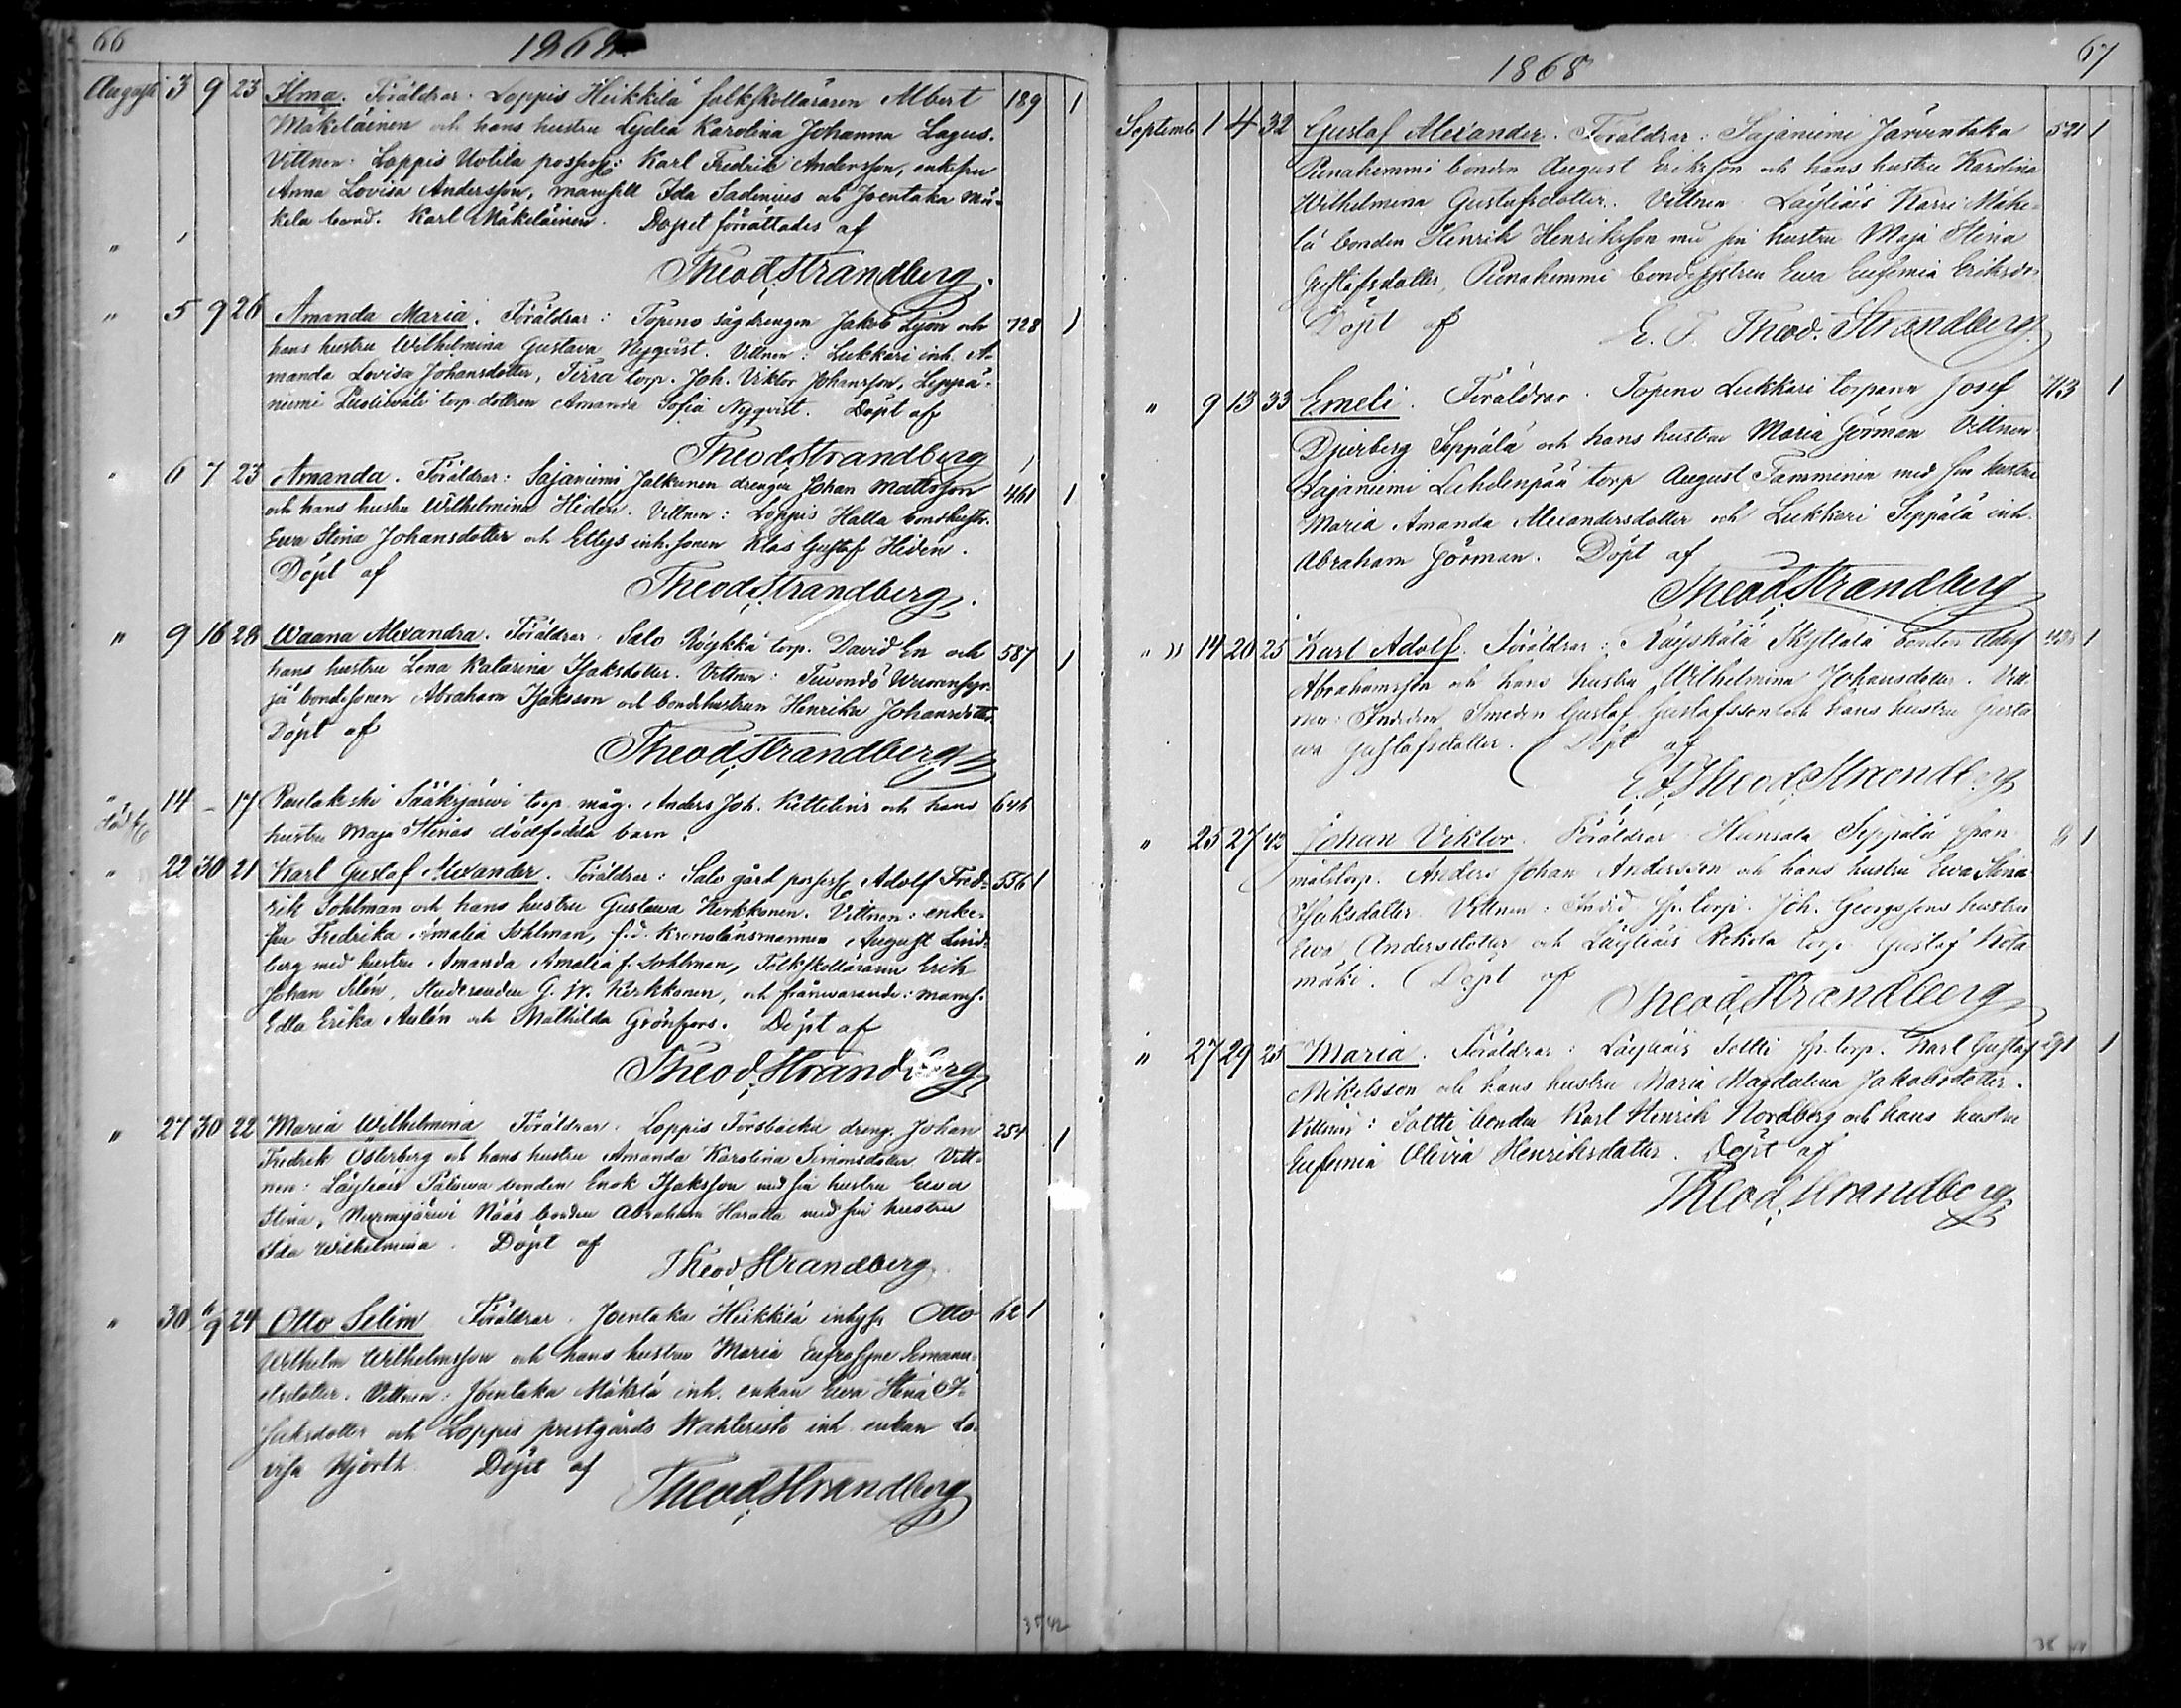 66
1868
Augusti 3 9 23 Ilma. Föräldrar. Loppis Heikkilä folkskolläraren Albert 189 1
Mäkeläinen och hans hustru Lydia Karolina Johanna Lagus.
Vittnen: Loppis Uotila possess: Karl Fredrik Andersson, enkefru
Anna Lovisa Andersson, mamsell Ida Sadenius och Joentaka Mä-
kelä bond. Karl Mäkeläinen. Dopet förrättades af
Theod. Strandberg.
" 5 9 26 Amanda Maria. Föräldrar: Topeno sågdrengen Jakob och 728 1
hans hustru Wilhelmina Gustava Nyqvist. Vittnen: Lukkari inh. A-
manda Lovisa Johansdotter, Tirra torp. Joh. Viktor Johansson, Leppä-
niemi torp. dottren Amanda Sofia Nyqvist. Döpt af
Theod. Strandberg
" 6 7 23 Amanda. Föräldrar: Sajaniemi Jalkanen drengen Johan Mattsson 461 1
och hans hustru Wilhelmina Hidén. Vittnen: Loppis Halla bondhustr.
Ewa Stina Johansdotter och Ettys inh. sonen Klas Gustaf Hidén.
Döpt af
Theod. Strandberg.
" 9 16 28 Waana Alexandra. Föräldrar. Salo Röykkä torp. David En och 587 1
hans hustru Lena Katarina Isaksdotter. Vittnen:
bondesonen Abraham Isaksson och bondehustrun Henrika Johansdotter.
Döpt af
Theod. Strandberg
" 14 - 17 Rautakoski Sääksjärwi torp. måg. Anders Joh. och hans 646
hustru Maja Stinas dödfödda barn.
" 22 30 21 Karl Gustaf Alexander. Föräldrar: Salo gård possess. Adolf Fred- 556 1
rik Sohlman och hans hustru Gustawa Kerkkonen. Vittnen: enke-
fru Fredrika Amalia Sohlman, f.d. Kronolänsmannen August Lind-
berg med hustru Amanda Amalia f. Sohlman, Folkskolläraren Erik
Johan Silén, Studeranden G. W. Kerkkonen, och frånwarande: mams.
Edla Erika Aulén och Mathilda Grönfors. Döpt af
Theod. Strandberg
" 27 30 22 Maria Wilhelmina Föräldrar. Loppis Forsbacka dreng. Johan 254 1
Fredrik Österberg och hans hustru Amanda Karolina Simonsdotter Vitt-
nen: Läyliäis bonden Enok Isaksson med sin hustru Ewa
Stina, Nurmijärwi Nääs bonden Abraham med sin hustru
Ida Wilhelmina. Döpt af
Theod. Strandberg
" 30 6/9 24 Otto Selim Föräldrar. Joentaka Heikkilä inhyss Otto 62 1
Wilhelm Wilhelmsson och hans hustru Maria Eufrosyne Emanu-
elsdotter. Vittnen: Joentaka Mäkelä inh. enkan Ewa Stina I-
saksdotter och Loppis prestgårds inh. enkan Lo-
visa Hjorth. Döpt af
Theod. Strandberg
35 42
67
1868
Septemb 1 4 32 Gustaf Alexander. Föräldrar: Sajaniemi Järventaka 521 1
Pienahemmi bonden August Eriksson och hans hustru Karolina
Wilhelmina Gustafsdotter. Vittnen Läyliäis Karri Mäke-
lä bonden Henrik Henriksson med sin hustru Maja Stina
Gustafsdotter, Pienahemmi bondehustrun Ewa Eufemia Eriksdr.
Döpt af
E. F. Theod. Strandberg
" 9 13 33 Emeli. Föräldrar. Topeno Lukkari torparen Josef 713 1
Djerberg Seppälä och hans hustru Maria Görman Vittnen
Sajaniemi Lahdenpää torp August Tamminen med sin hustru
Maria Amanda Alexandersdotter och Lukkari Seppälä inh.
Abraham Görman. Döpt af
Theod. Strandberg
" 14 20 25 Karl Adolf. Föräldrar: Räyskälä Kyttälä bonden Adolf 1
Abrahamsson och hans hustru Wilhelmina Johansdotter. Vitt-
nen: Smeden Gustaf Gustafsson och hans hustru Gusta
wa Gustafsdotter. Döpt af
E. F. Theod. Strandberg
" 25 27 42 Johan Viktor. Föräldrar Hunsala Seppälä
torp. Anders Johan Andersson och hans hustru Ewa Stina
Isaksdotter. Vittnen: torp. Joh. Georgssons hustru
Ewa Andersdotter och Läyliäis torp. Gustaf
mäki. Döpt af
Theod. Strandberg
" 27 29 25 Maria. Föräldrar: Läyliäis Soltti torp. Karl Gustaf 291 1
Mikelsson och hans hustru Maria Magdalena Jakobsdotter.
Vittnen: Soltti bonden Karl Henrik Nordberg och hans hustru
Eufemia Olivia Henriksdotter. Döpt af
Theod. Strandberg
38 44